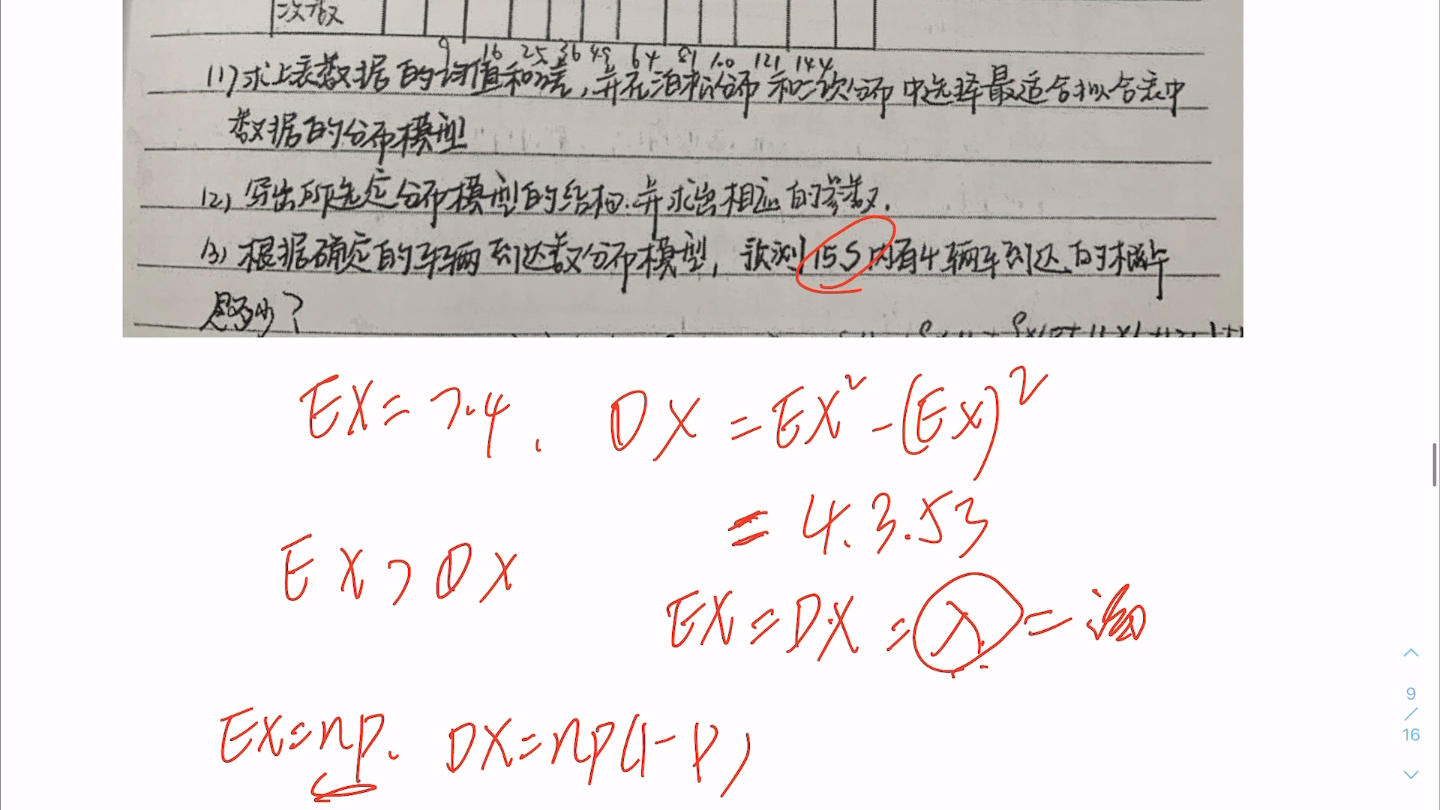 次数
9 16 25 36 49 64 81 100 121 144
(1)求上表数据的均值和方差,并在泊松分布和二项分布中选择最适合拟合表中
数据的分布模型
(2)写出所选定分布模型的结构.并求出相应的参数.
(3)根据确定的车辆到达数分布模型,预测15S内有4辆车到达的概率
是多少?
EX=7.4. DX=EX²-(EX)²
=4.3.53
EX>DX
EX=DX=λ=泊
EX=np. DX=np(1-p)
9
/
16